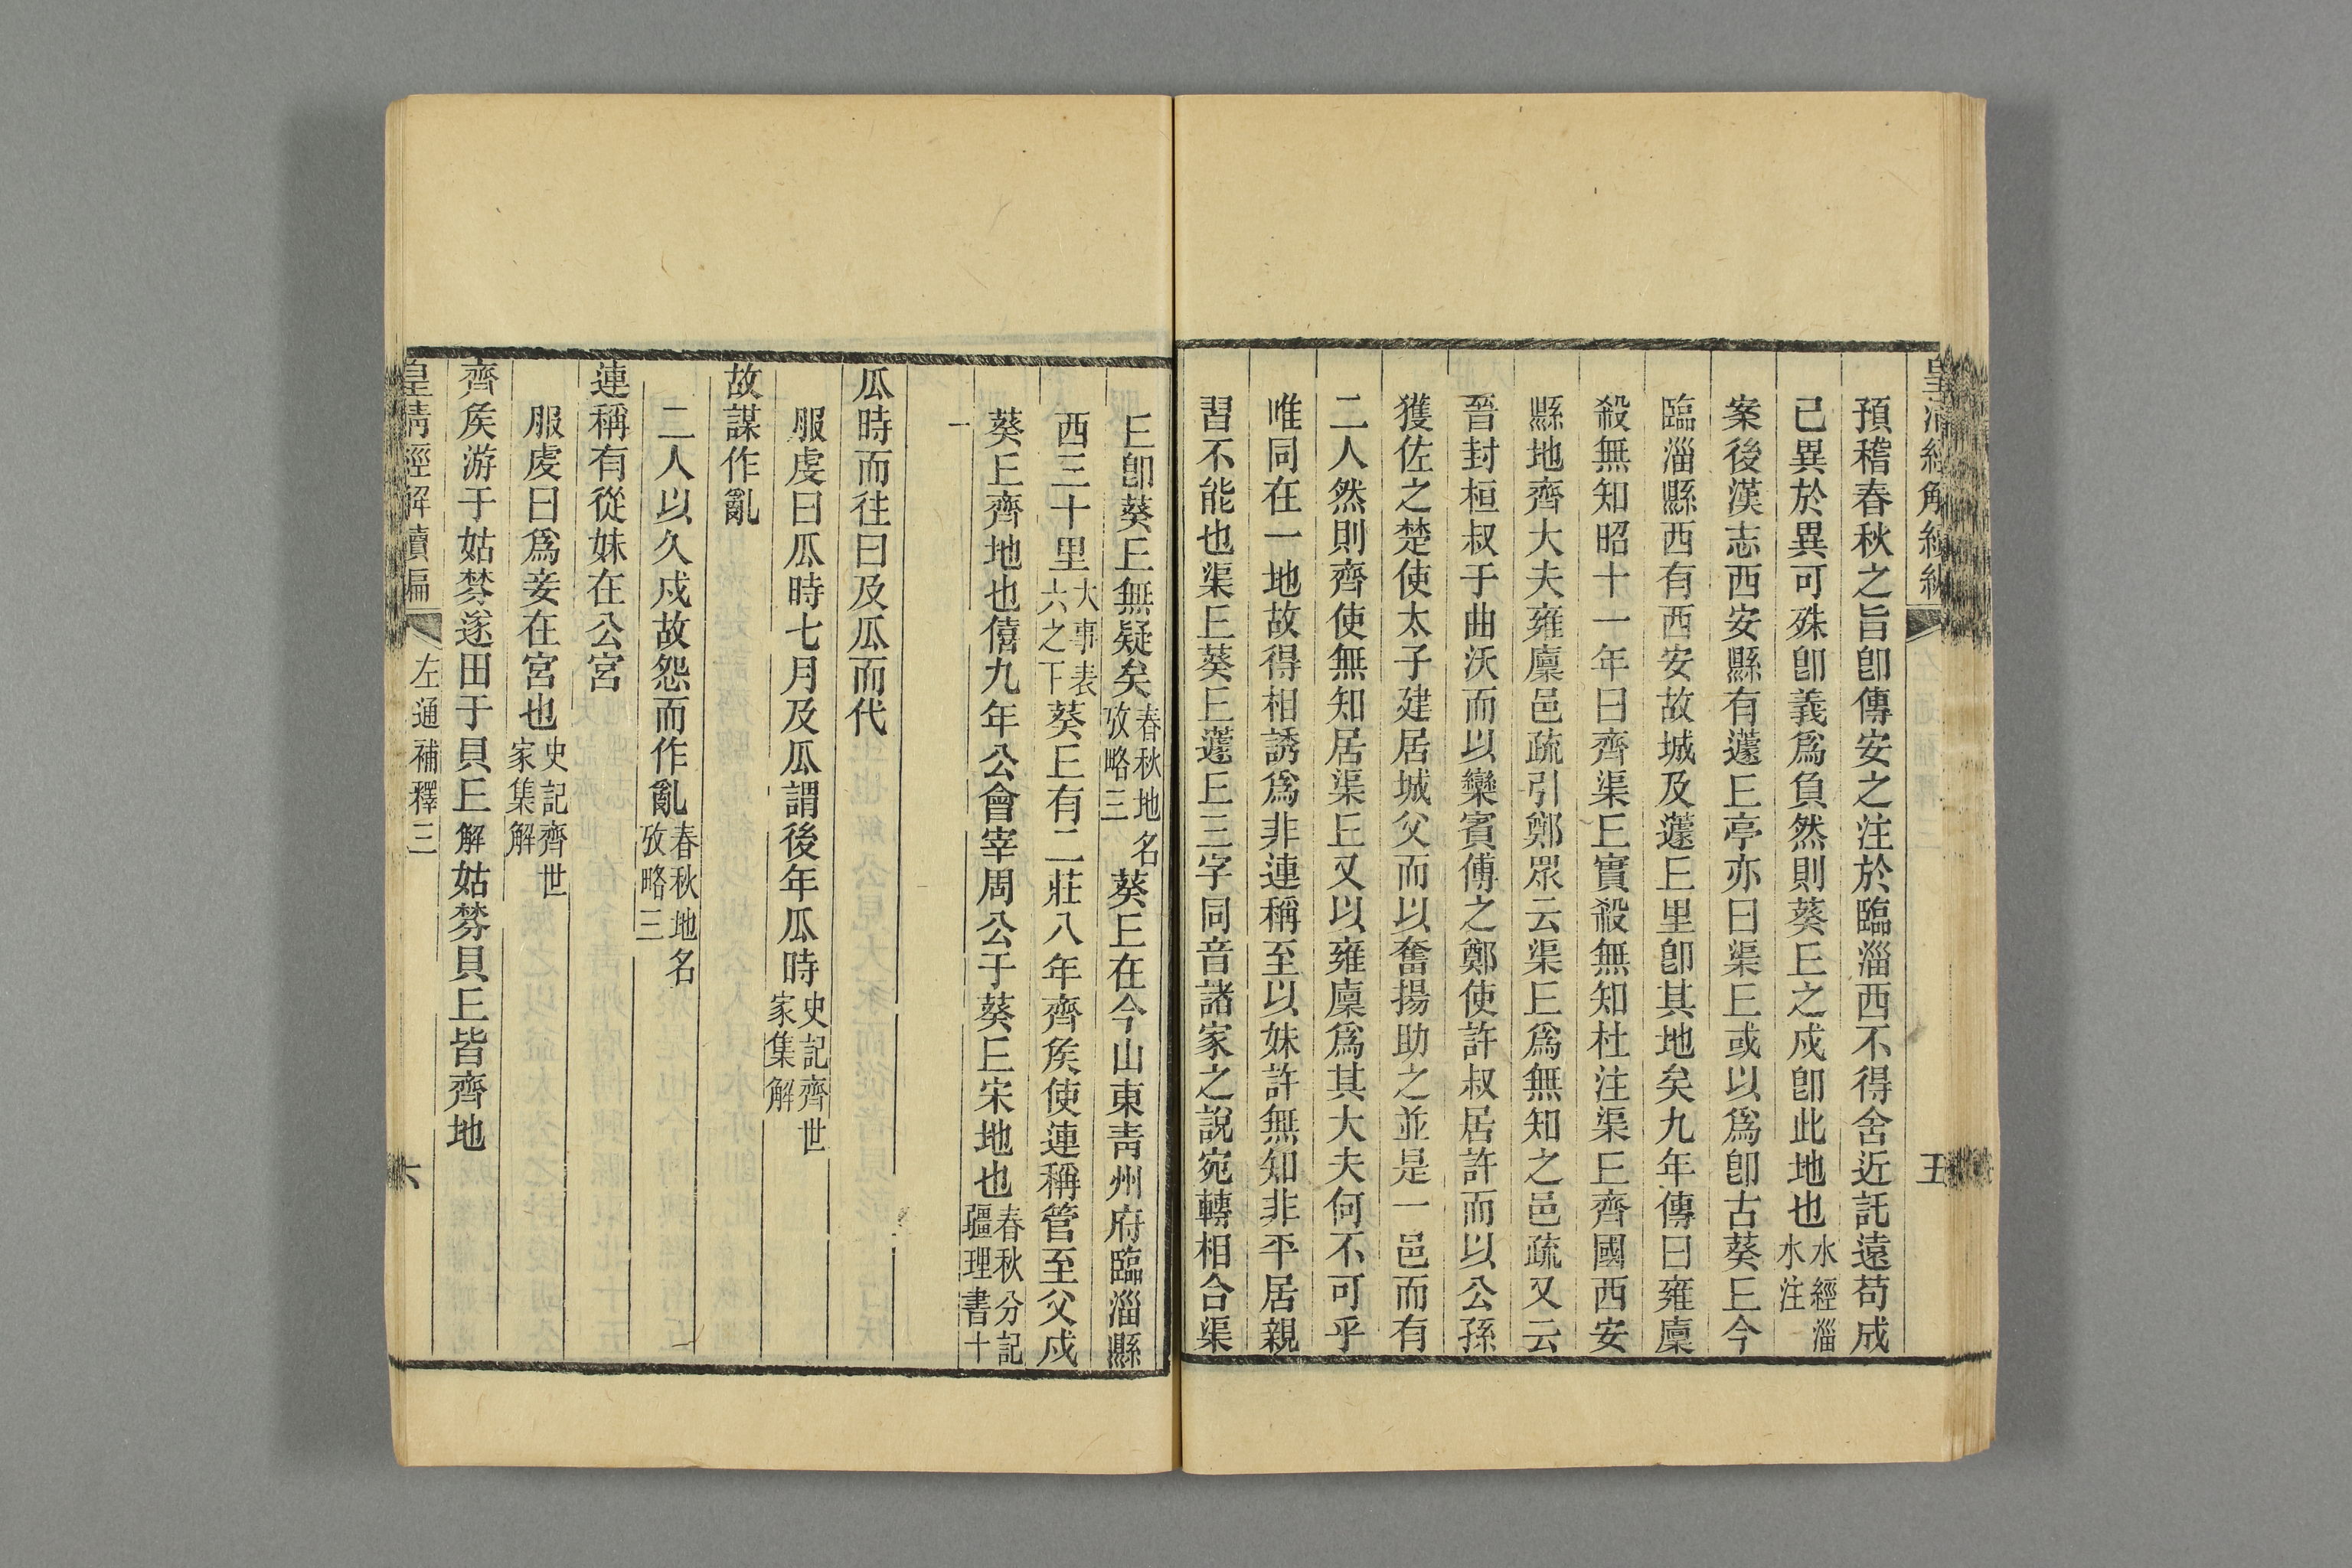 皇清經解續編
五
預稽春秋之旨卽傳安之注於臨淄西不得舍近託遠苟成
己異於異可殊卽義爲負然則葵𠀉之戍卽此地也水經淄水注
案後漢志西安縣有蘧𠀉亭亦曰渠𠀉或以爲卽古葵𠀉今
臨淄縣西有西安故城及蘧𠀉里卽其地矣九年傳曰雍廩
殺無知昭十一年曰齊渠𠀉實殺無知杜注渠𠀉齊國西安
縣地齊大夫雍廩邑疏引鄭眾云渠𠀉爲無知之邑疏又云
晉封桓叔于曲沃而以欒賓傅之鄭使許叔居許而以公孫
獲佐之楚使太子建居城父而以奮揚助之並是一邑而有
二人然則齊使無知居渠𠀉又以雍廩爲其大夫何不可乎
唯同在一地故得相誘爲非連稱至以妹許無知非平居親
習不能也渠𠀉葵𠀉蘧𠀉三字同音諸家之說宛轉相合渠
𠀉卽葵𠀉無疑矣春秋地名攷略三葵𠀉在今山東靑州府臨淄縣
西三十里大事表六之下葵𠀉有二莊八年齊矦使連稱管至父戍
葵𠀉齊地也僖九年公會宰周公于葵𠀉宋地也春秋分記疆理書十
一
瓜時而往曰及瓜而代
服虔曰瓜時七月及瓜謂後年瓜時史記齊世家集解
故謀作亂
二人以久戍故怨而作亂春秋地名攷略三
連稱有從妹在公宮
服虔曰爲妾在宮也史記齊世家集解
齊矦游于姑棼遂田于貝𠀉解姑棼貝𠀉皆齊地
皇清經解續編
左通補釋三
六